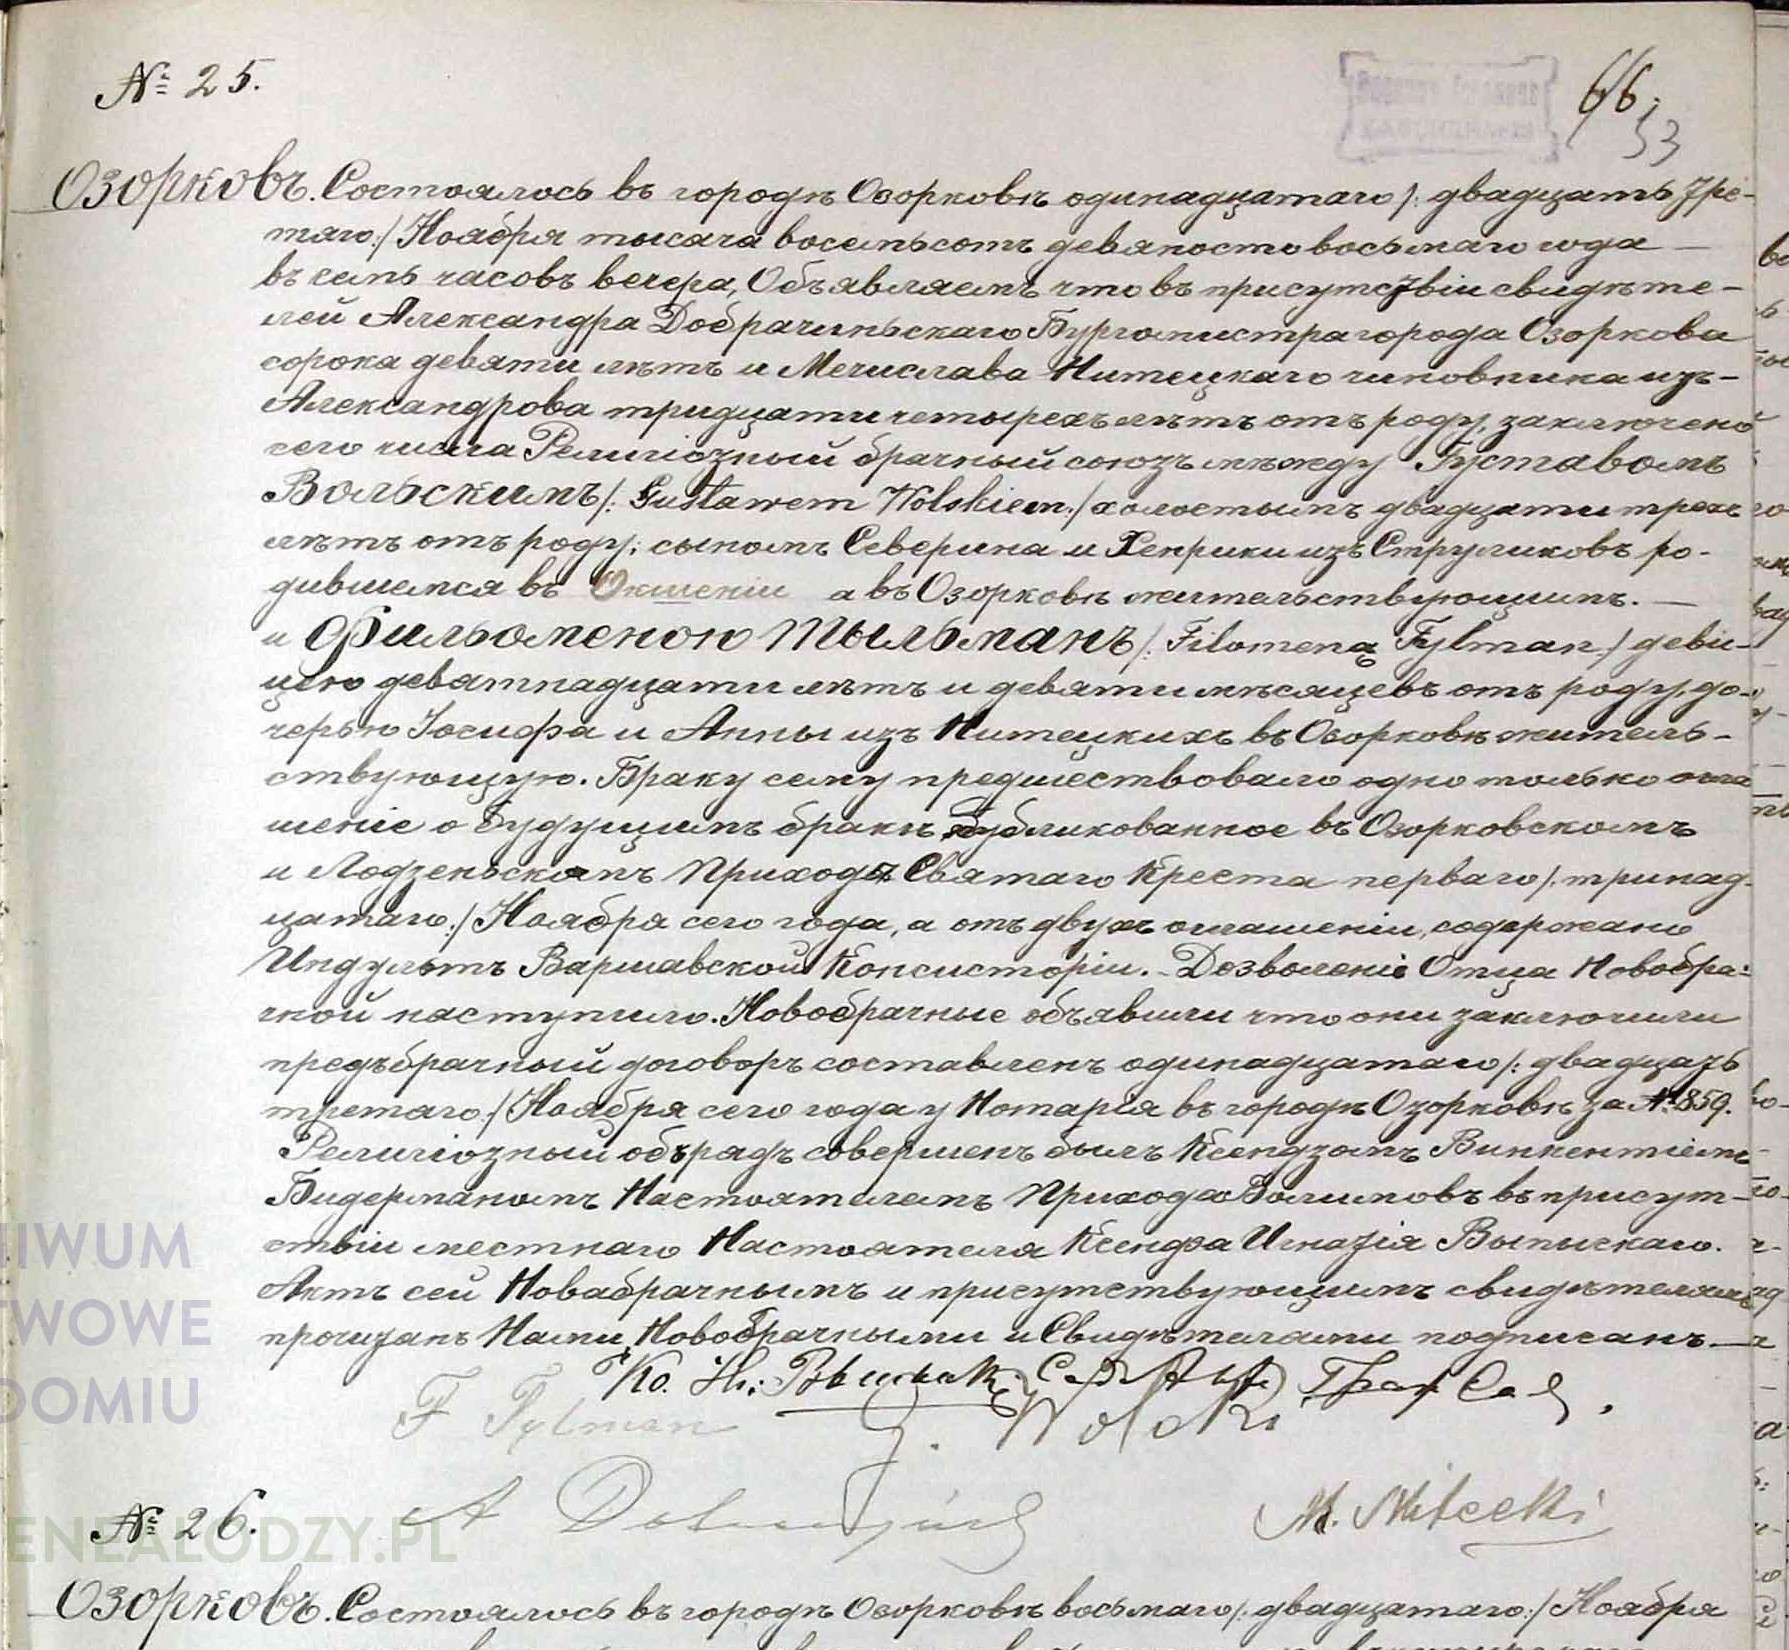 № 25.
66.
53
Озорковъ. Состоялось въ городѣ Озорковѣ одинадцатаго /: двадцать тре-
таго :/ Ноября тысяча восемьсотъ девяносто восьмаго года —
въ семь часовъ вечера, Объявляемъ что въ присутствіи свидѣте-
лей Александра Добрачинскаго Бургомистра города Озоркова
сорока девяти лѣтъ и Мечислава Нитецкаго чиновника изъ-
Александрова тридцати четырехъ лѣтъ отъ роду, заключенъ
сего числа Религіозный брачный союзъ между Густавомъ
Вольскимъ /: Gustawem Wolskiem :/ холостымъ двадцати трехъ
лѣтъ отъ роду; сыномъ Северина и Хенрики изъ Струмиковъ ро-
дившемся въ а въ Озорковѣ жительствующимъ. —
и Фильоменою Тыльманъ /: Filomeną Tylman :/ деви-
цею девятнадцати лѣтъ и девяти мѣсяцевъ отъ роду, до-
черью Іосифа и Анны изъ Нитецкихъ въ Озорковѣ житель-
ствующую. Браку сему предшествовало одно только огла
шеніе о будущимъ бракѣ публикованное въ Озорковскомъ
и Лодзенскомъ Приходѣ Святаго Креста перваго /: тринад-
цатаго :/ Ноября сего года, а отъ двухъ оглашеніи, содержано
Индультъ Варшавской Консисторіи. - Дозволеніе Отца Новобра-
чной наступило. Новобрачные объявили что они заключили
предъбрачный договоръ составленъ одинадцатаго /: двадцать
третаго :/ Ноября сего года у Нотарія въ городѣ Озорковѣ за № 859.
Религіозный обърядъ совершенъ былъ Ксендзомъ Винкентіемъ
Бидерманомъ Настоятелемъ Прихода въ присут-
ствіи местнаго Настоятеля Ксендза Игнатія
Актъ сей Новабрачнымъ и присутствующимъ свидѣтелямъ
прочитанъ Нами, Новобрачными и Свидѣтелами подписанъ. —
F Tylman
G. Wolski
A
M. Nitecki
№ 26.
Озорковъ. Состоялось въ городѣ Озорковѣ восьмаго /: двадцатаго :/ Ноября
IWUM
WOWE
DOMIU
ENEALODZY.PL